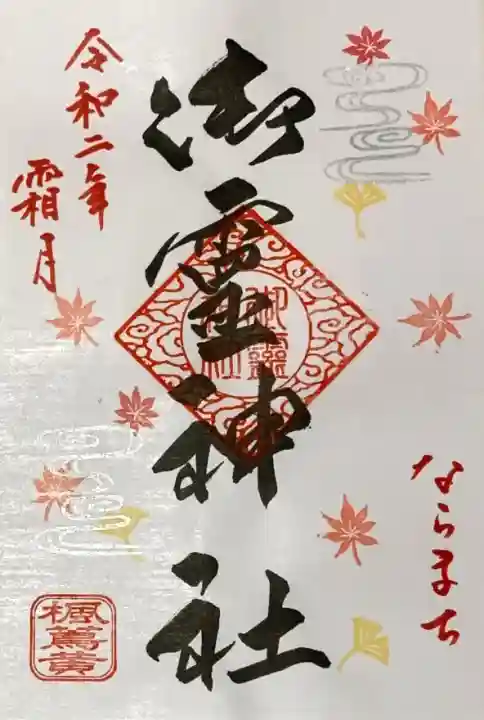 ならまち
御霊神社
御霊
神社
令和二年
霜月
楓蔦黄